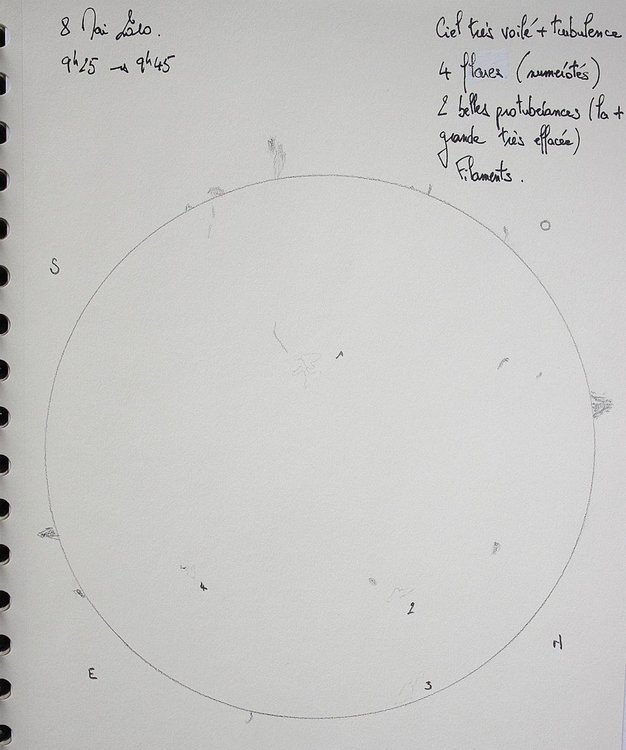 8 Mai
9h25 → 9h45
Ciel très voilé + turbulence
4 flares (numérotés)
2 belles protubérances (la +
grande très effacée)
Filaments.
O
S
1
4
2
N
E
3